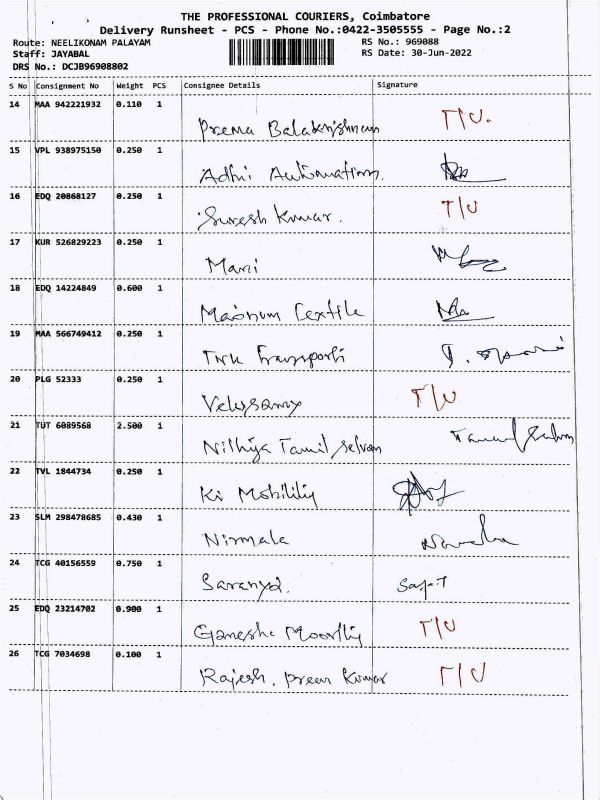 THE PROFESSIONAL COURIERS, Coimbatore
Delivery Runsheet - PCS - Phone No.:0422-3505555 - Page No.:2
Route: NEELIKONAM PALAYAM RS No.: 969088
Staff: JAYABAL RS Date: 30-Jun-2022
DRS No.: DCJB96908802
S No Consignment No Weight PCS Consignee Details Signature
14 MAA 942221932 0.110 1
Prema Balakrishnan T/U.
15 VPL 938975150 0.250 1
Adhi Automation.
16 EDQ 20868127 0.250 1
Suresh Kumar. T/U
17 KUR 526829223 0.250 1
Mani
18 EDQ 14224849 0.600 1
Magnum Textile
19 MAA 566749412 0.250 1
20 PLG 52333 0.250 1
Velusamy T/U
21 TUT 6089568 2.500 1
Nithiya Tamil selvan
22 TVL 1844734 0.250 1
Ki Mobility
23 SLM 298478685 0.430 1
Nirmala
24 TCG 40156559 0.750 1
Saranya.
25 EDQ 23214702 0.900 1
Ganesha Moorthy T/U
26 TCG 7034698 0.100 1
Rajesh. Prem Kumar T/U